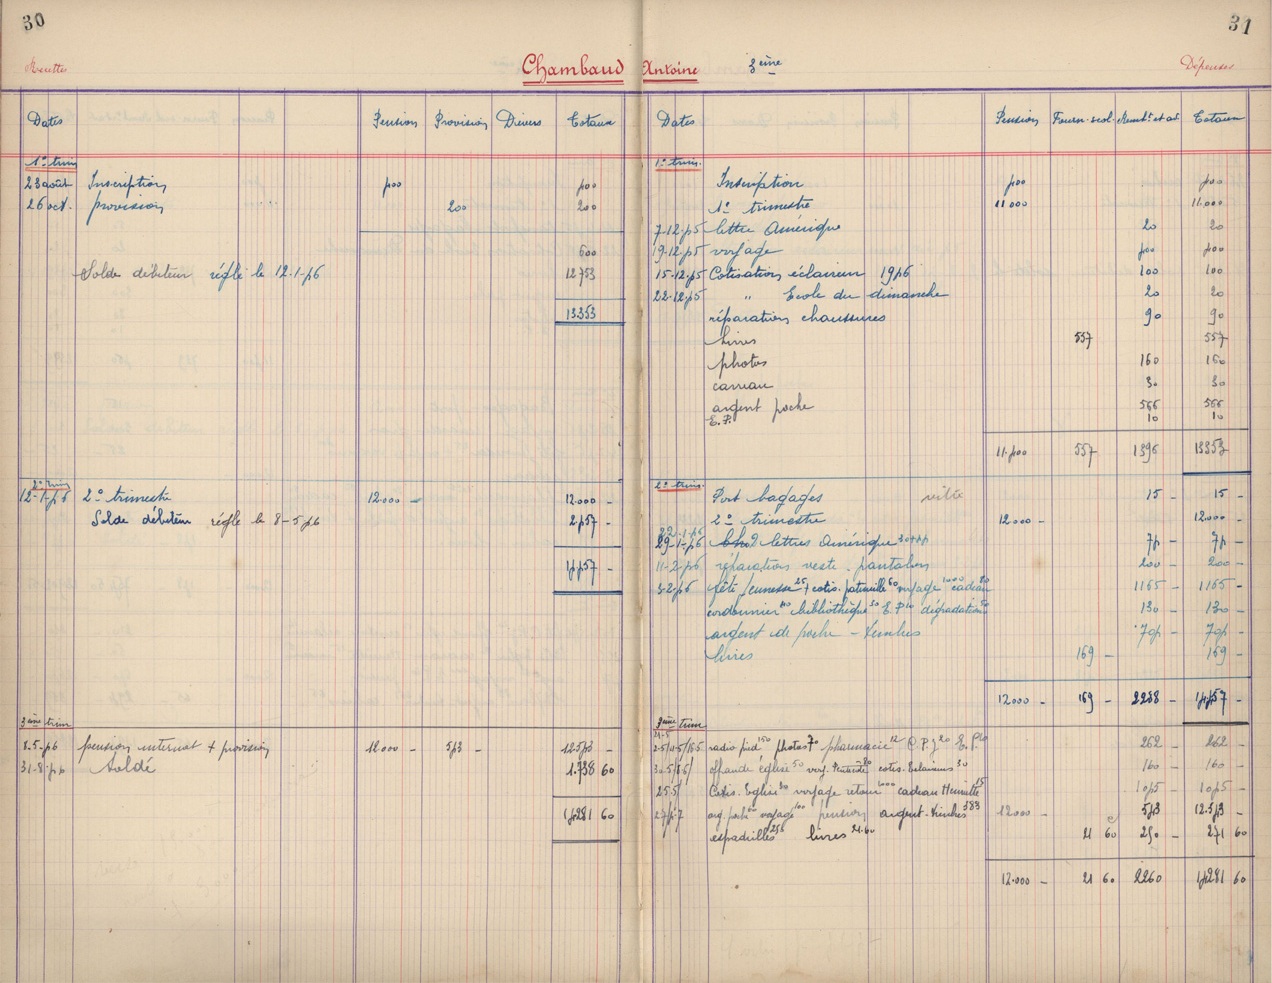 30
31
Recettes
Chambaud Antoine 3ème
Dépenses
Dates Pension Provision Divers Totaux
1er trim
23 août Inscription 500 500
26 oct. provision 200 200
600
Solde débiteur réglé le 12.1.56 12753
13353
2e trim
12-1-56 2e trimestre 12.000 - 12.000 -
Solde débiteur réglé le 8-5-56 2557
14557
3ème trim
8.5.56 pension internat + provision 12000 - 543 - 12543 -
Soldé 1.738 60
14281 60
Dates Pension Fourn. scol. Totaux
1er trim.
Inscription 500 500
1er trimestre 11000 11.000
7-12-55 lettre Amérique 20 20
19-12-55 voyage 500 500
15-12-55 Cotisation éclaireur 1956 100 100
22-12-55 " Ecole du dimanche 20 20
réparations chaussures 90 90
livres 557 557
photos 160 160
carreau 30 30
argent poche 566 566
E.P. 10 10
11.500 557 1396 13353
2e trim.
Port bagages 15 - 15 -
2e trimestre 12000 - 12.000 -
29-1-56 2 lettres Amérique 75 - 75 -
11-2-56 réparations veste - pantalon 200 - 200 -
3-2-56 fête jeunesse 25 + cotis. patrouille 60 voyage 1000 cadeau 1165 - 1165 -
cordonnier bibliothèque 30 E.P. 10 dégradation 130 - 130 -
argent de poche - timbres
livres 169 - 169 -
12000 - 169 - 2238 - 14557 -
3ème trim
radio pied 150 photos 70 pharmacie 12 262 - 262 -
offrande église 50 cotis. Eclaireurs 30 160 - 160 -
Cotis. Eglise voyage retour cadeau Henriette 15
arg. poche voyage 100 pension argent - timbres 383 12000 - 543 - 12.543 -
espadrilles 250 livres 21.60 21 60 250 - 271 60
12.000 - 21 60 2260 14281 60